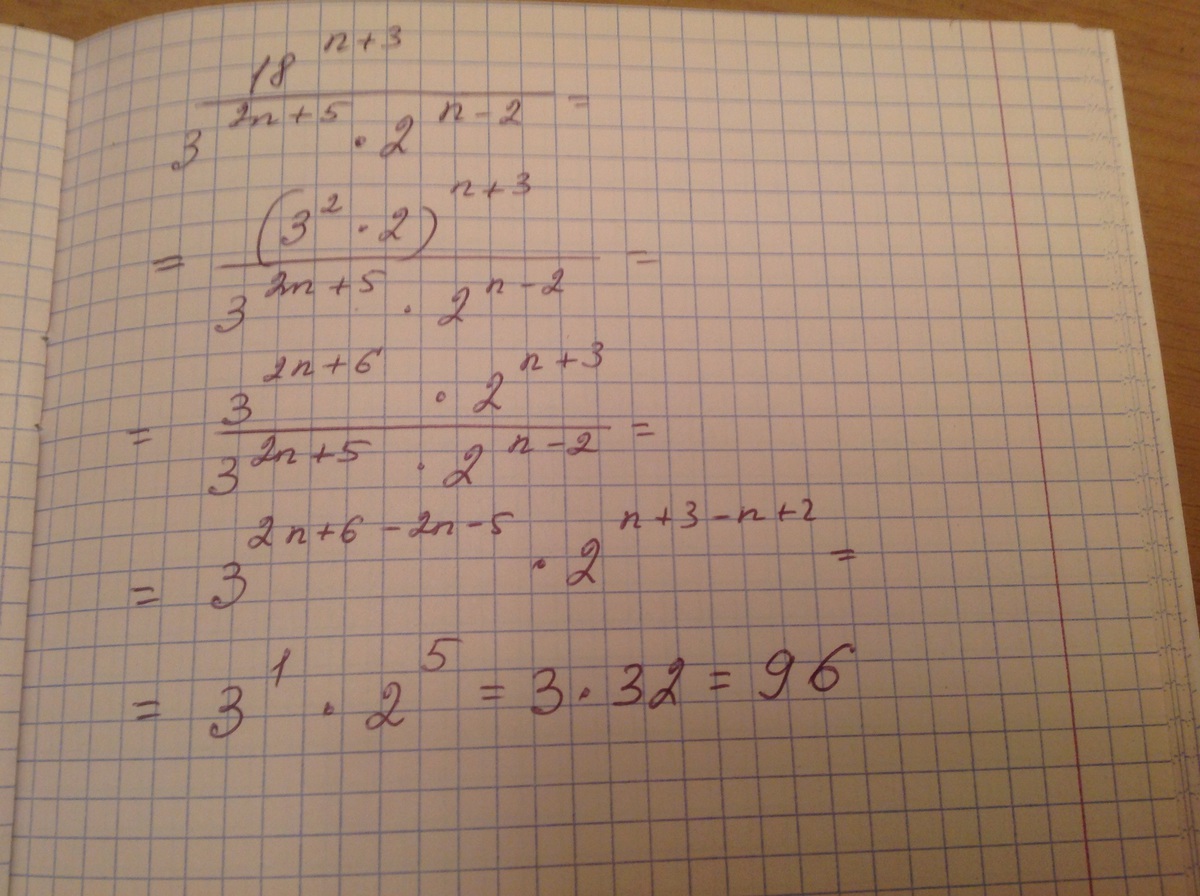 18^(n+3) / (3^(2n+5) · 2^(n-2)) =
= (3^2 · 2)^(n+3) / (3^(2n+5) · 2^(n-2)) =
= 3^(2n+6) · 2^(n+3) / (3^(2n+5) · 2^(n-2)) =
= 3^(2n+6-2n-5) · 2^(n+3-n+2) =
= 3^1 · 2^5 = 3 · 32 = 96